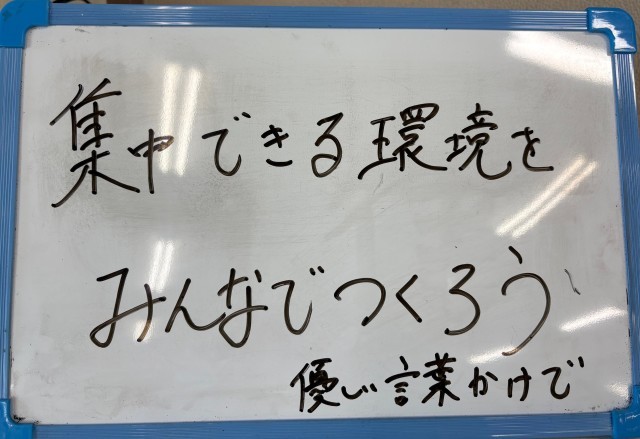 集中できる環境を
みんなでつくろう
優しい言葉かけで